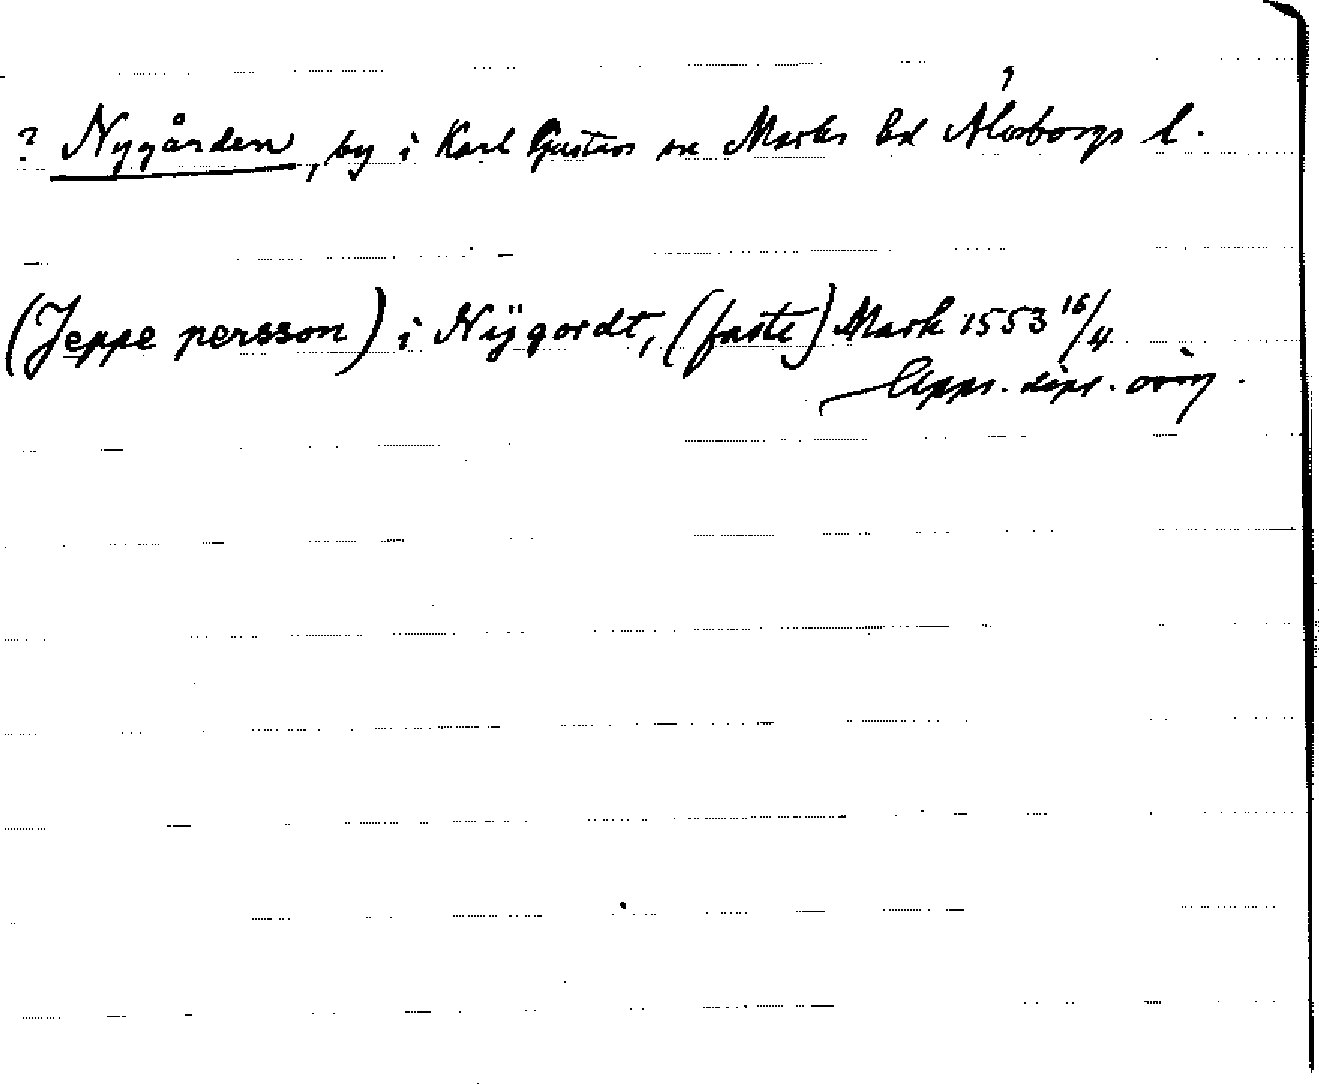 ? Nygården, by i Karl Gustavs sn Marks hd Älvsborgs l.
(Jeppe persson) i Nÿgordt, (faste) Mark 1553 16/4
Uppr. dipl. orig.